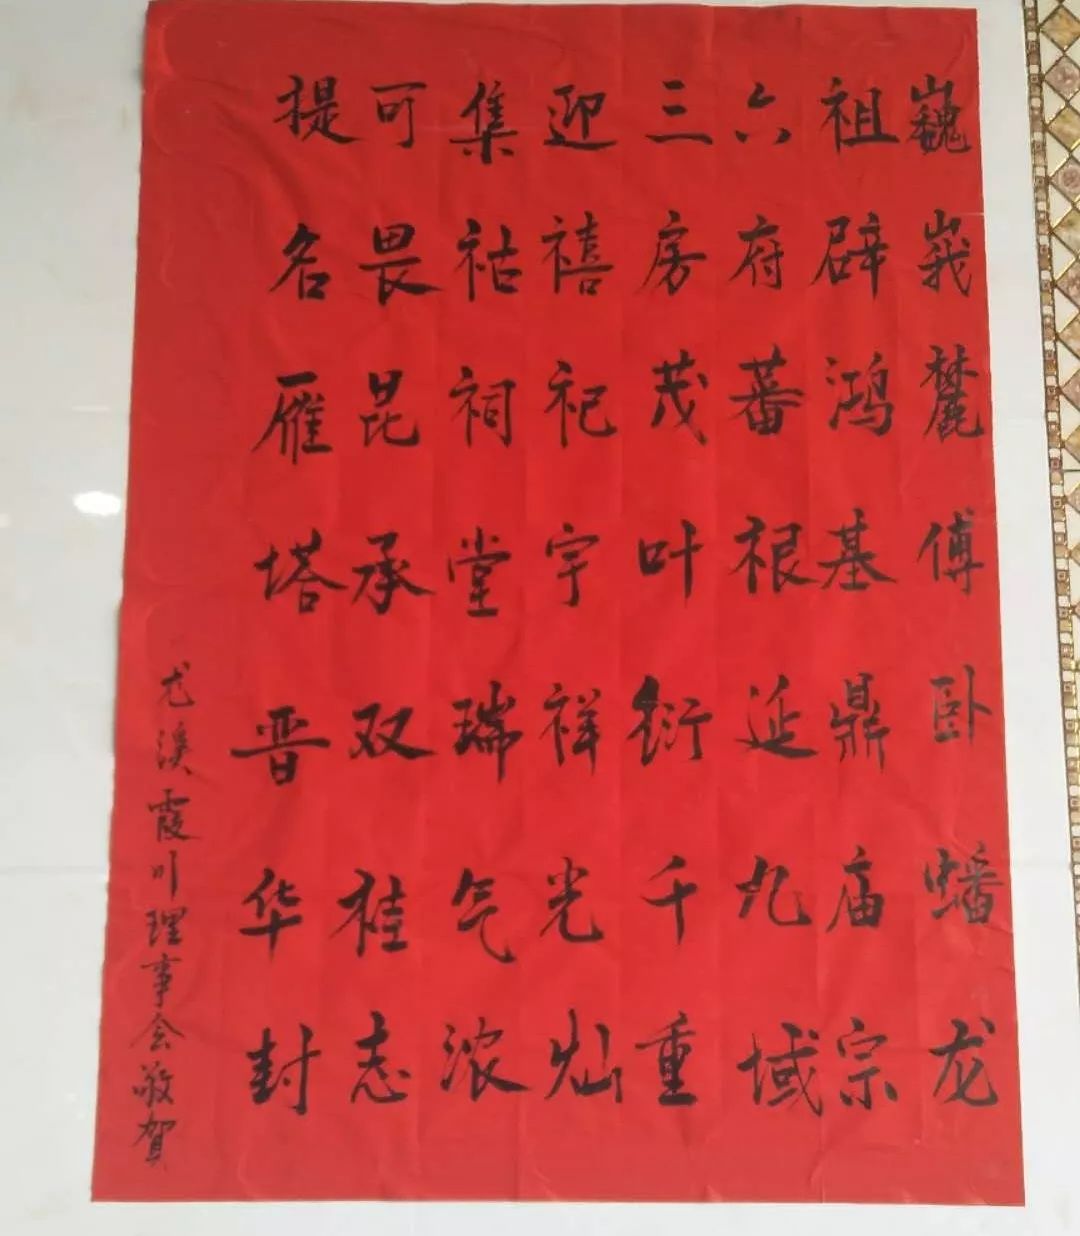 巍峩麓傅卧蟠龙
祖辟鸿基鼎庙宗
六府蕃根延九域
三房茂叶衍千重
迎禧祀宇祥光灿
集祜祠堂瑞气浓
可畏昆承双桂志
提名雁塔晋华封
尤溪霞川理事会敬贺